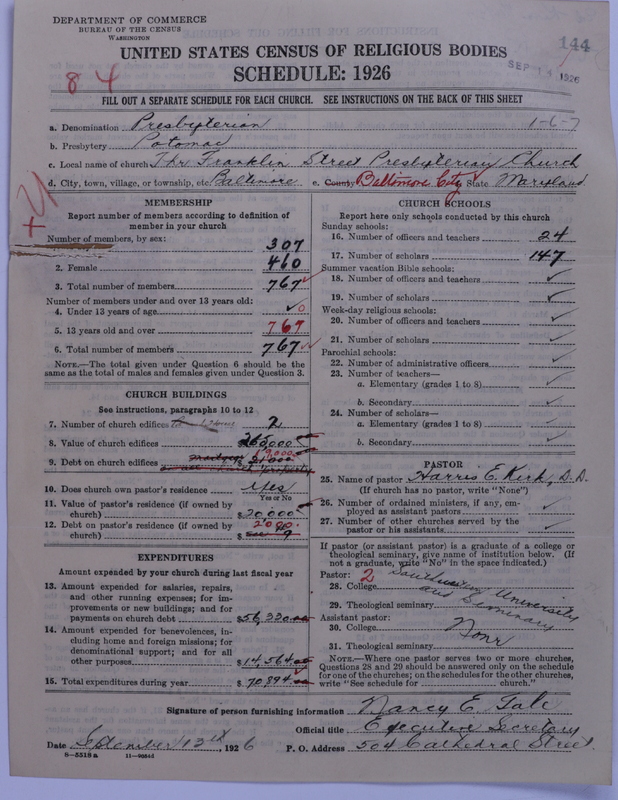 DEPARTMENT OF COMMERCE
BUREAU OF THE CENSUS
WASHINGTON
144
SEP 14 1926
UNITED STATES CENSUS OF RELIGIOUS BODIES
84
SCHEDULE: 1926
FILL OUT A SEPARATE SCHEDULE FOR EACH CHURCH. SEE INSTRUCTIONS ON THE BACK OF THIS SHEET
a. Denomination Presbyterian 1-6-7
b. Presbytery Potomac
c. Local name of church The Franklin Street Presbyterian Church
d. City, town, village, or township, etc. Baltimore e. County Baltimore City State Maryland
MEMBERSHIP
Report number of members according to definition of
member in your church
Number of members, by sex:
307
2. Female 460
3. Total number of members 767
Number of members under and over 13 years old:
4. Under 13 years of age 0
5. 13 years old and over 767
6. Total number of members 767
NOTE.—The total given under Question 6 should be
same as the total of males and females given under Question 3.
CHURCH BUILDINGS
See instructions, paragraphs 10 to 12
7. Number of church edifices 2
8. Value of church edifices $265,000
9. Debt on church edifices 19,000
10. Does church own pastor's residence Yes
Yes or No
11. Value of pastor's residence (if owned by
church) $20,000
12. Debt on pastor's residence (if owned by
church) 2000
EXPENDITURES
Amount expended by your church during last fiscal year
13. Amount expended for salaries, repairs,
and other running expenses; for im-
provements or new buildings; and for
payments on church debt $56,330.00
14. Amount expended for benevolences, in-
cluding home and foreign missions; for
denominational support; and for all
other purposes $14,564.00
15. Total expenditures during year $70,894.00
CHURCH SCHOOLS
Report here only schools conducted by this church
Sunday schools:
16. Number of officers and teachers 24
17. Number of scholars 147
Summer vacation Bible schools:
18. Number of officers and teachers
19. Number of scholars
Week-day religious schools:
20. Number of officers and teachers
21. Number of scholars
Parochial schools:
22. Number of administrative officers
23. Number of teachers—
a. Elementary (grades 1 to 8)
b. Secondary
24. Number of scholars—
a. Elementary (grades 1 to 8)
b. Secondary
PASTOR
25. Name of pastor Harris E. Kirk, D.D.
(If church has no pastor, write "None")
26. Number of ordained ministers, if any, em-
ployed as assistant pastors
27. Number of other churches served by the
pastor or his assistants
If pastor (or assistant pastor) is a graduate of a college or
theological seminary, give name of institution below. (If
not a graduate, write "No" in the space indicated.)
Pastor: 2
28. College Southwestern University
29. Theological seminary and Seminary
Assistant pastor:
30. College None
31. Theological seminary
NOTE.—Where one pastor serves two or more churches,
Questions 28 and 29 should be answered only on the schedule
for one of the churches; on the schedules for the other churches,
write "See schedule for church."
Signature of person furnishing information Nancy E. Tali
Official title Executive Secretary
Date September 13th 1926 P. O. Address 504 Cathedral Street.
8—5518a 11—9656d